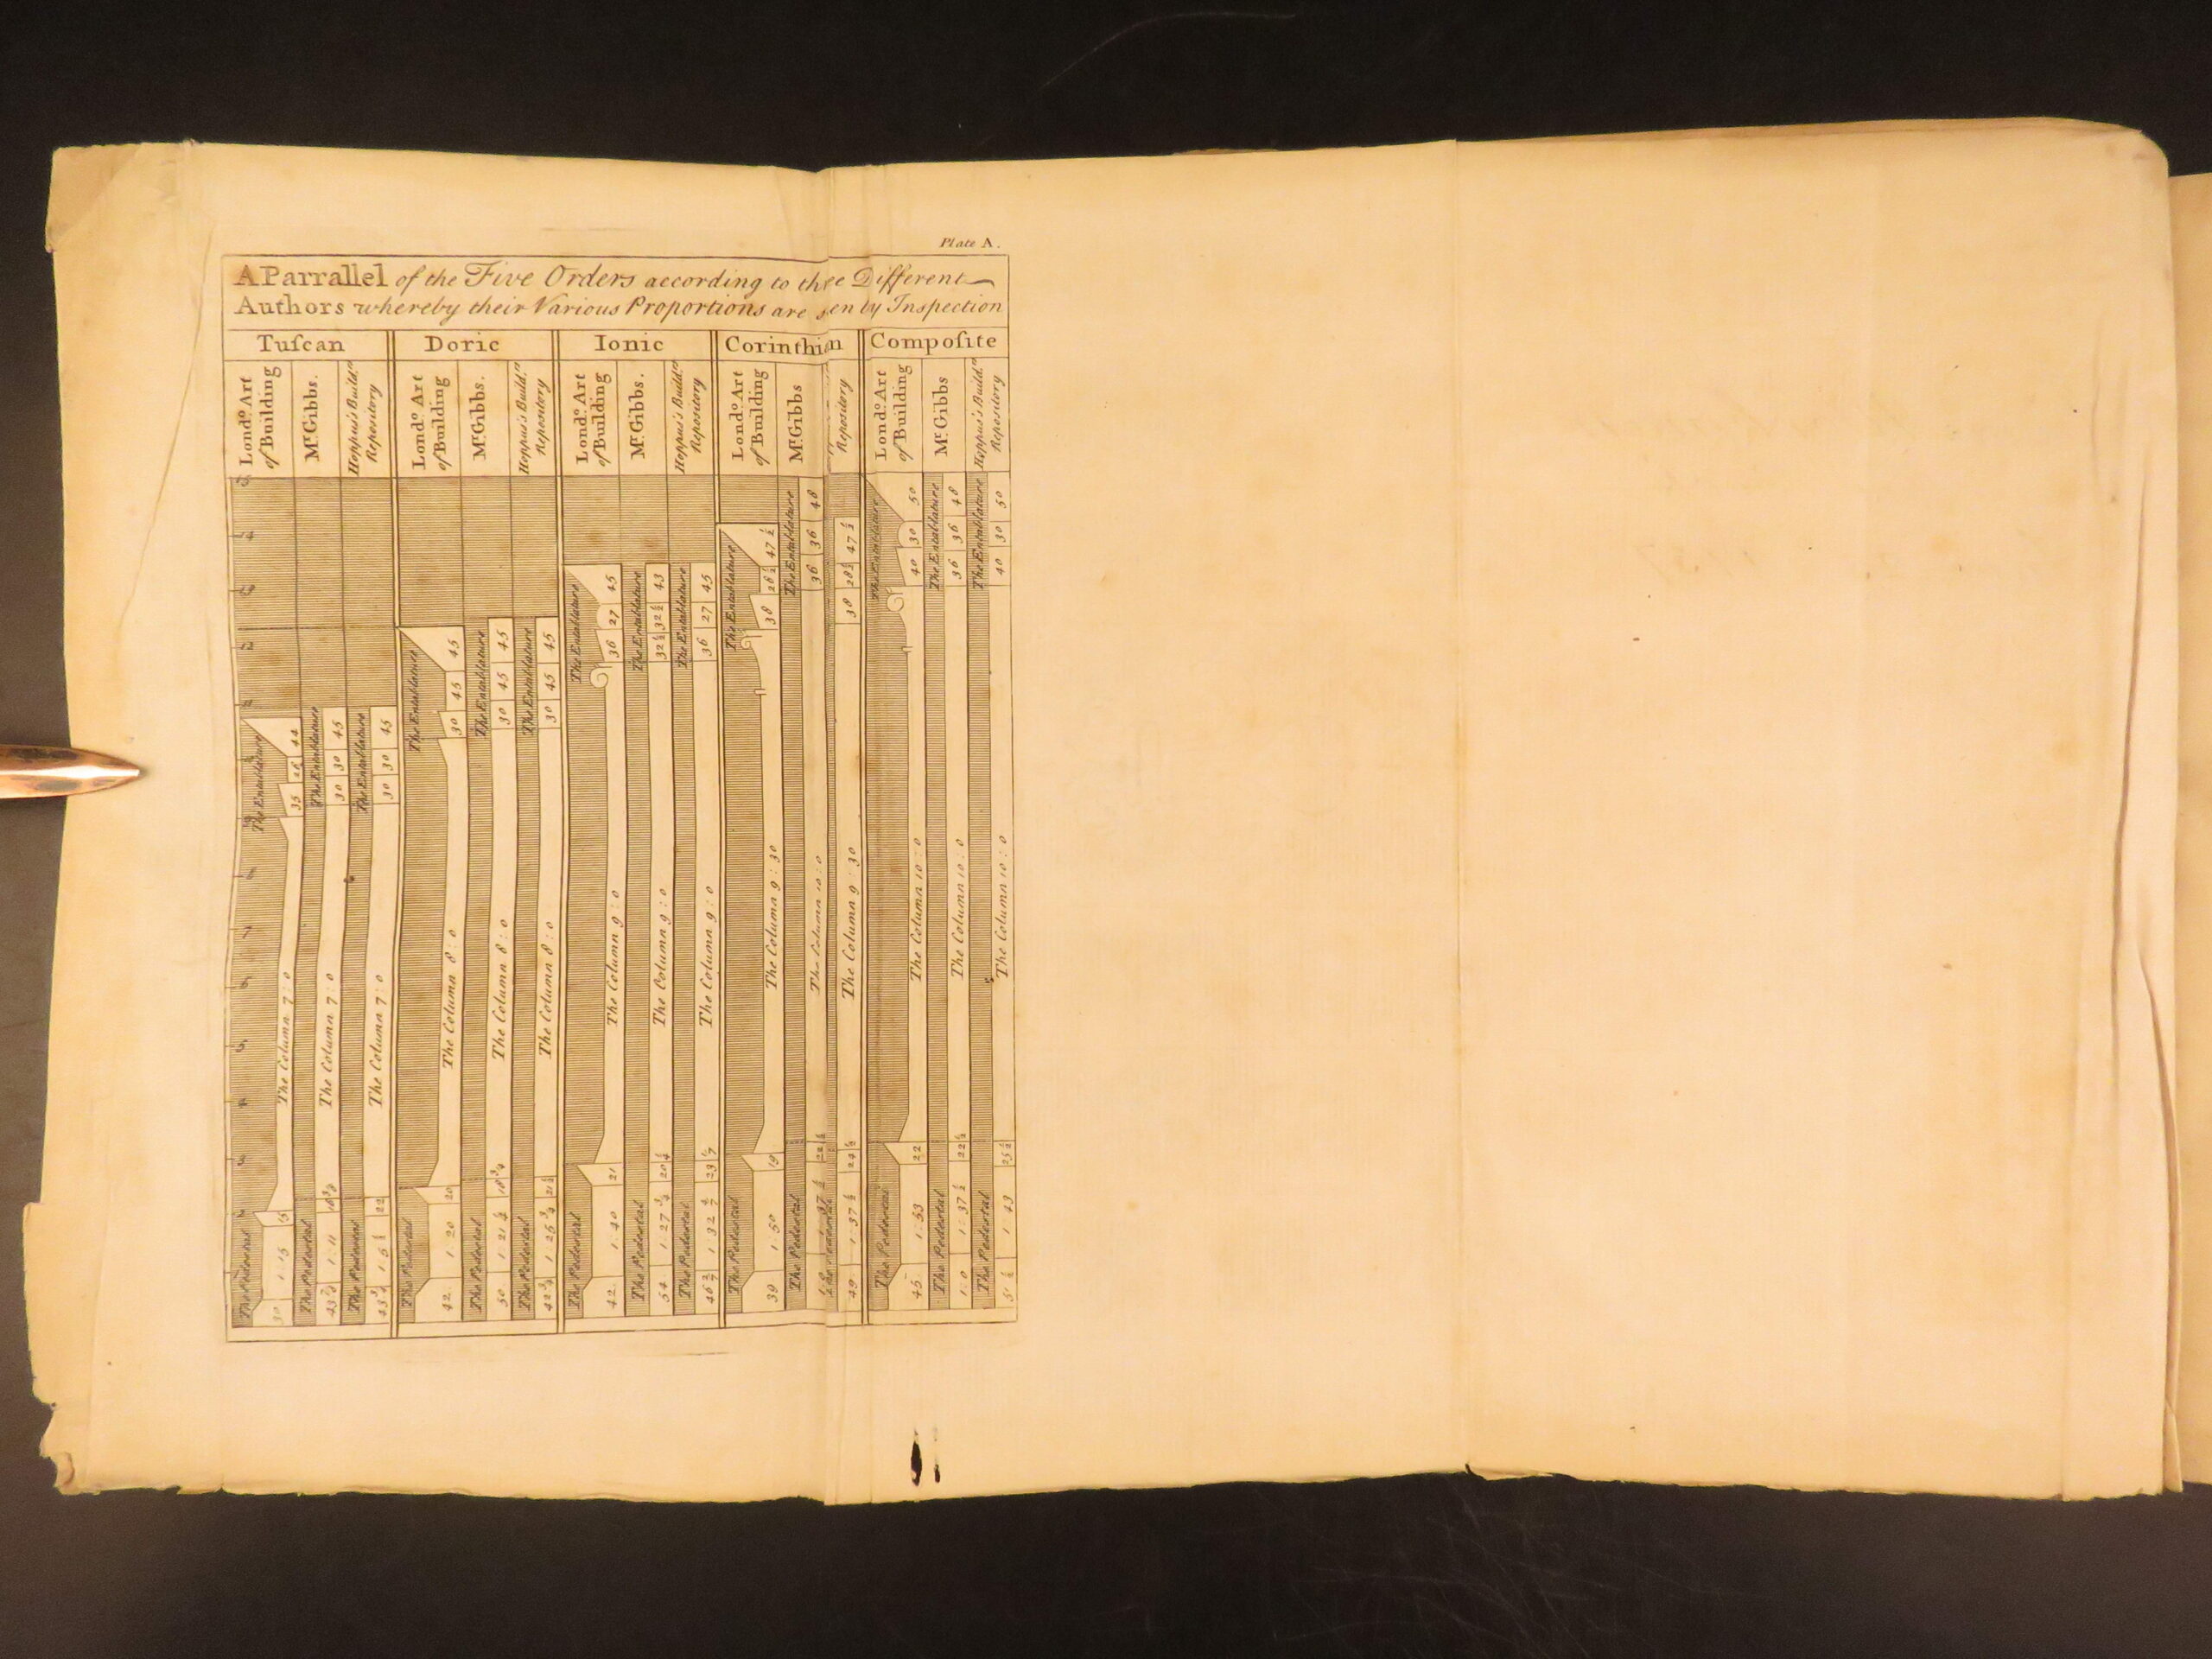 Plate A.
A Parrallel of the Five Orders according to thee Different
Authors whereby their Various Proportions are sen by Inspection
Tuſcan
Doric
Ionic
Corinthian
Compoſite
Lond.º Art
of Building
Mr. Gibbs.
Hoppus's Build.rs
Repository
Lond.º Art
of Building
Mr. Gibbs.
Hoppus's Build.rs
Repository
Lond.º Art
of Building
Mr. Gibbs.
Hoppus's Build.rs
Repository
Lond.º Art
of Building
Mr. Gibbs
Repository
Lond.º Art
of Building
Mr. Gibbs
Hoppus's Build.rs
Repository
The Entablature
35 26 44
The Column 7 : 0
The Pedestal
30 1 : 15 15
The Entablature
30 30 45
The Column 7 : 0
The Pedestal
1 : 11
The Entablature
30 30 45
The Column 7 : 0
The Pedestal
43 3/4 1 5 1/2 22
The Entablature
30 45 45
The Column 8 : 0
The Pedestal
42 1 : 20 20
The Entablature
30 45 45
The Column 8 : 0
The Pedestal
50 1 : 21 1/4 18 3/4
The Entablature
30 45 45
The Column 8 : 0
The Pedestal
42 3/4 1 25 3/4 21 1/2
The Entablature
36 27 45
The Column 9 : 0
The Pedestal
42 1 : 40 21
The Entablature
32 1/2 32 1/2 43
The Column 9 : 0
The Pedestal
54 1 : 27 3/4 20 1/4
The Entablature
36 27 45
The Column 9 : 0
The Pedestal
46 2/7 1 32 4/7 23 1/7
The Entablature
38 28 1/2 47 1/2
The Column 9 : 30
The Pedestal
39 1 : 50 19
The Entablature
36 36 48
The Column 10 : 0
The Pedestal
1 : 37 1/2 22 1/2
38 28 1/2 47 1/2
The Column 9 : 30
49 1 : 37 1/2 24 1/2
The Entablature
40 30 50
The Column 10 : 0
The Pedestal
45 1 : 53 22
The Entablature
36 36 48
The Column 10 : 0
The Pedestal
1 : 0 1 : 37 1/2 22 1/2
The Entablature
40 30 50
The Column 10 : 0
The Pedestal
51 1/2 1 43 25 1/2